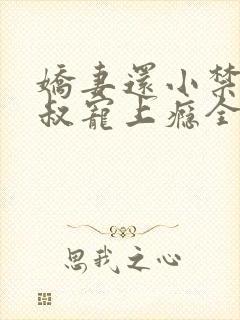 嬌妻還小禁
叔寵上癮全
思我之心